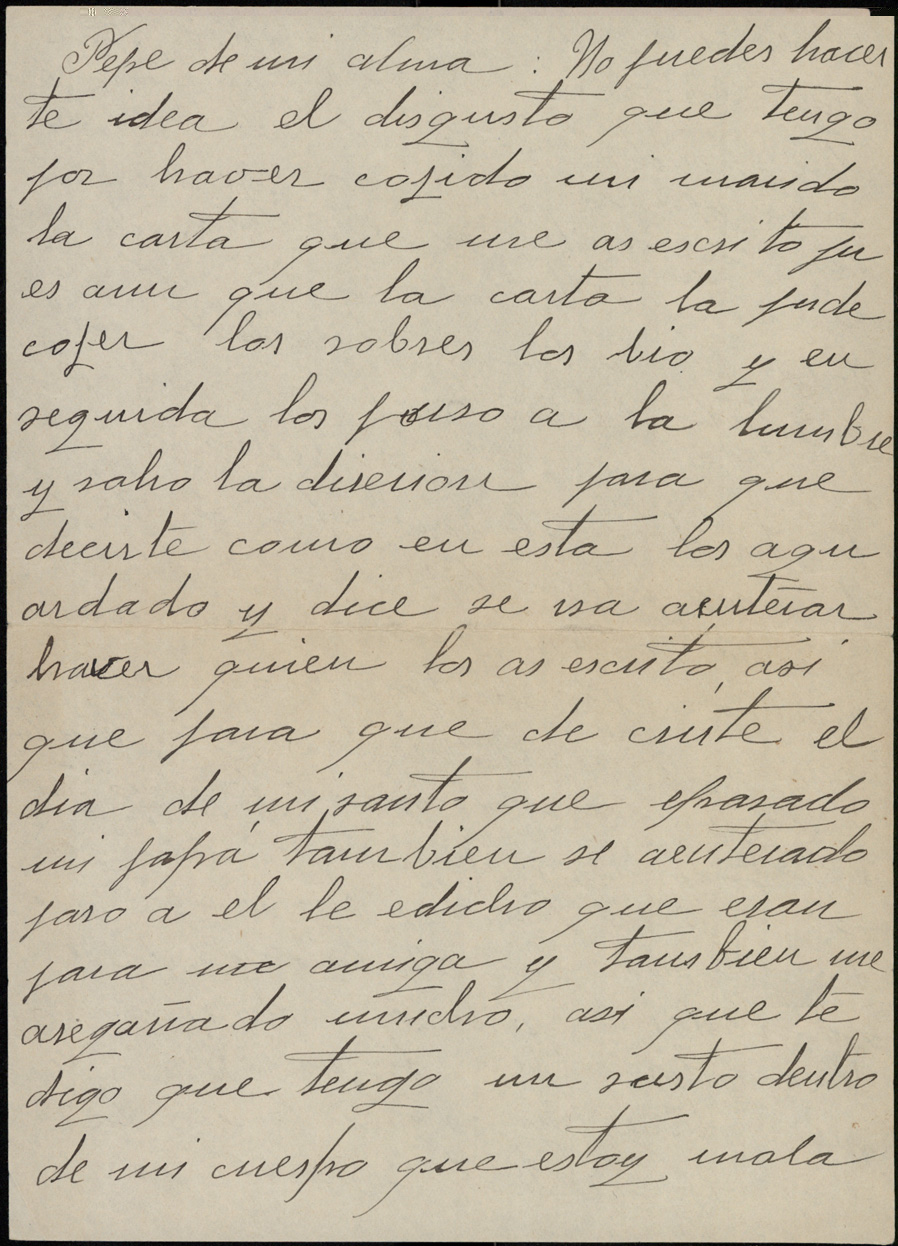 Pepe de mi alma : No puedes hacer
te idea el disgusto que tengo
por haver cojido mi marido
la carta que me as escrito pu
es aun que la carta la pude
cojer los sobres los bio y en
seguida los puso a la lumbre
y sabio la diresion para que
decirte como en esta los agu
ardado y dice se va aenterar
haver quien los as escrito, asi
que para que de cirte el
dia de mi santo que epasado
mi papá tambien se aenterado
paro a el le edicho que eran
para me amiga y tambien me
aregañado mucho, asi que te
digo que tengo un susto dentro
de mi cuerpo que estoy mala